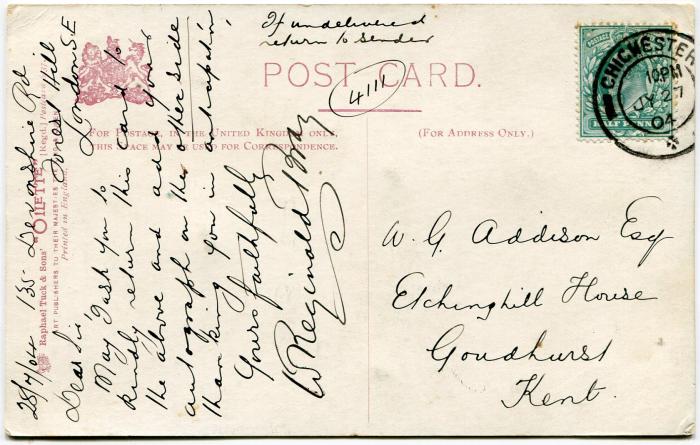 If undelivered
return to sender
POST CARD.
4111
FOR POSTAGE IN THE UNITED KINGDOM ONLY,
THIS SPACE MAY BE USED FOR CORRESPONDENCE.
(FOR ADDRESS ONLY.)
CHICHESTER
10 PM
JY 27
04
HALF PENNY
W. G. Addison Esq
Etchinghill House
Goudhurst
Kent.
Raphael Tuck & Sons' "OILETTE" [Regd.]
ART PUBLISHERS TO THEIR MAJESTIES
Printed in England.
28/7/04 135 Devonshire Rd
Forest Hill
London SE
Dear Sir
May I ask you to
kindly return this card to
the above and add your
autograph on the other side
thanking you in anticipation,
Yours faithfully
W Reginald Bray